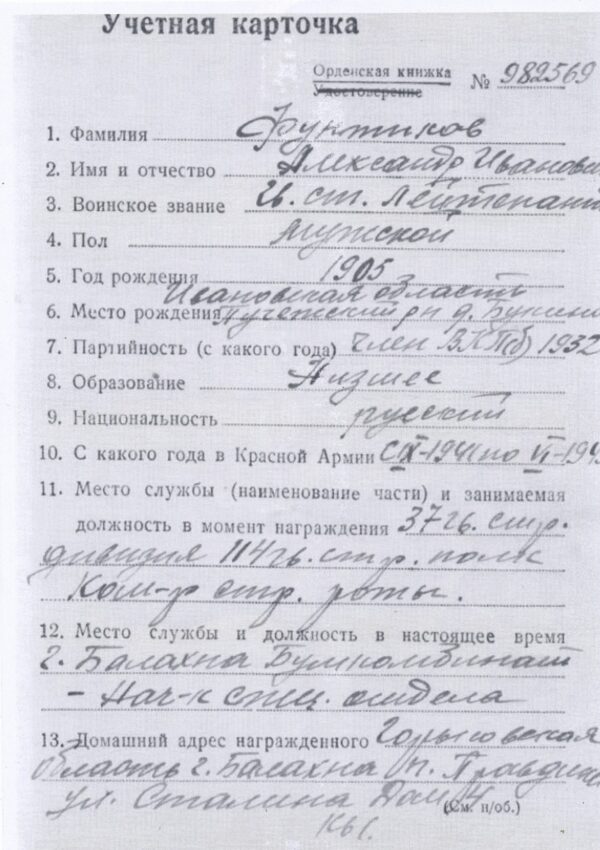 Учетная карточка
Орденская книжка
Удостоверение
№ 982569
1. Фамилия Фунтиков
2. Имя и отчество Александр Иванович
3. Воинское звание Гв. ст. Лейтенант
4. Пол мужской
5. Год рождения 1905
Ивановская область
6. Место рождения Пучежский рн д.
7. Партийность (с какого года) член ВКП(б) 1932
8. Образование Низшее
9. Национальность русский
10. С какого года в Красной Армии С IX-1941 по VI-194
11. Место службы (наименование части) и занимаемая
должность в момент награждения 37 гв. стр.
дивизия 114 гв. стр. полк
Ком-р стр. роты.
12. Место службы и должность в настоящее время
г. Балахна Бумкомбинат
- Нач-к спец. отдела
13. Домашний адрес награжденного Горьковская
область г. Балахна п. Правдинс
ул. Сталина Дом
(См. н/об.)